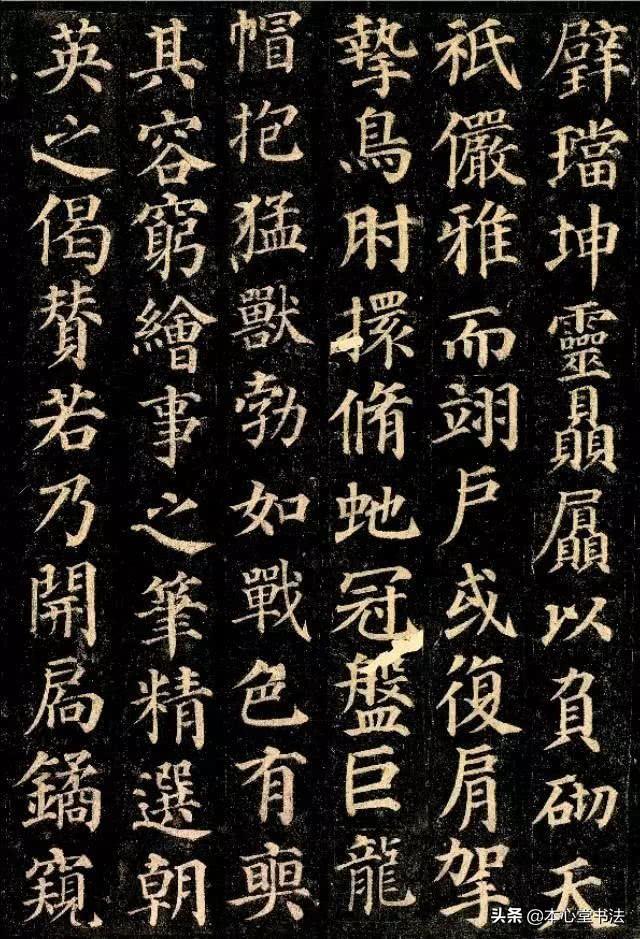 璧璫坤靈贔屭以負砌天
祇儼雅而翊戶或復肩挐
摯鳥肘擐脩虵冠盤巨龍
帽抱猛獸勃如戰色有奭
其容窮繪事之筆精選朝
英之偈贊若乃開扃鐍窺
头条 @本心堂书法